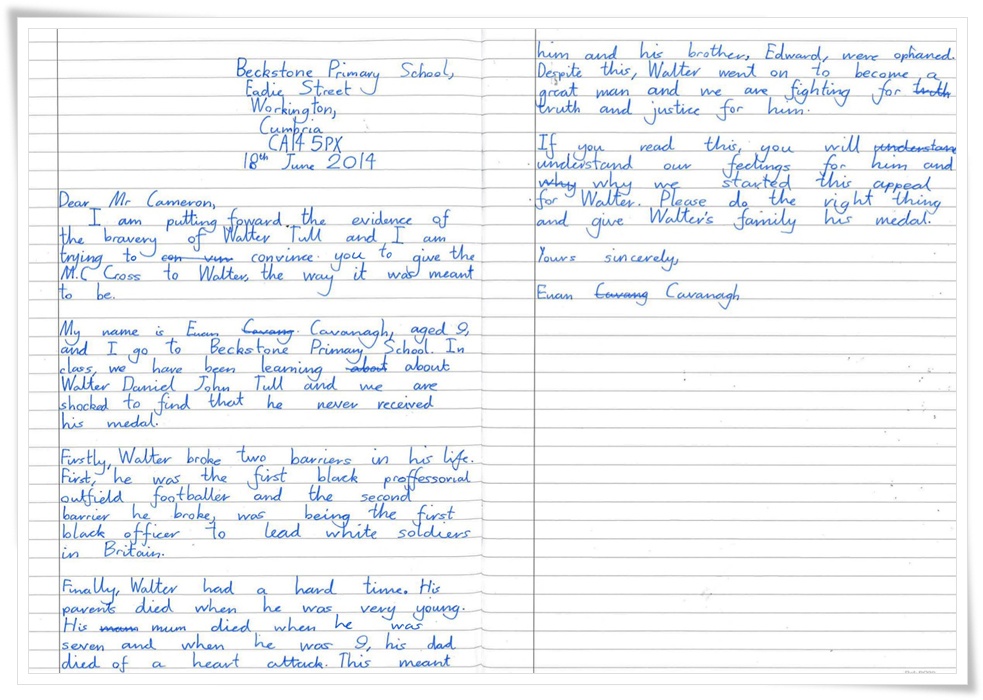 Beckstone Primary School,
Eadie Street
Workington,
Cumbria
CA14 5PX
18th June 2014
Dear Mr Cameron,
I am putting foward the evidence of
the bravery of Walter Tull and I am
trying to con vin convince you to give the
M.C Cross to Walter, the way it was meant
to be.
My name is Euan Cavang Cavanagh, aged 9,
and I go to Beckstone Primary School. In
class, we have been learning about about
Walter Daniel John Tull and we are
shocked to find that he never received
his medal.
Firstly, Walter broke two barriers in his life.
First, he was the first black proffessorial
outfield footballer and the second
barrier he broke, was being the first
black officer to lead white soldiers
in Britain.
Finally, Walter had a hard time. His
parents died when he was very young.
His mum mum died when he was
seven and when he was 9, his dad
died of a heart attack. This meant
him and his brother, Edward, were ophaned.
Despite this, Walter went on to become a
great man and we are fighting for truth
truth and justice for him.
If you read this, you will understan
understand our feelings for him and
why why we started this appeal
for Walter. Please do the right thing
and give Walter's family his medal.
Yours sincerely,
Euan Cavang Cavanagh